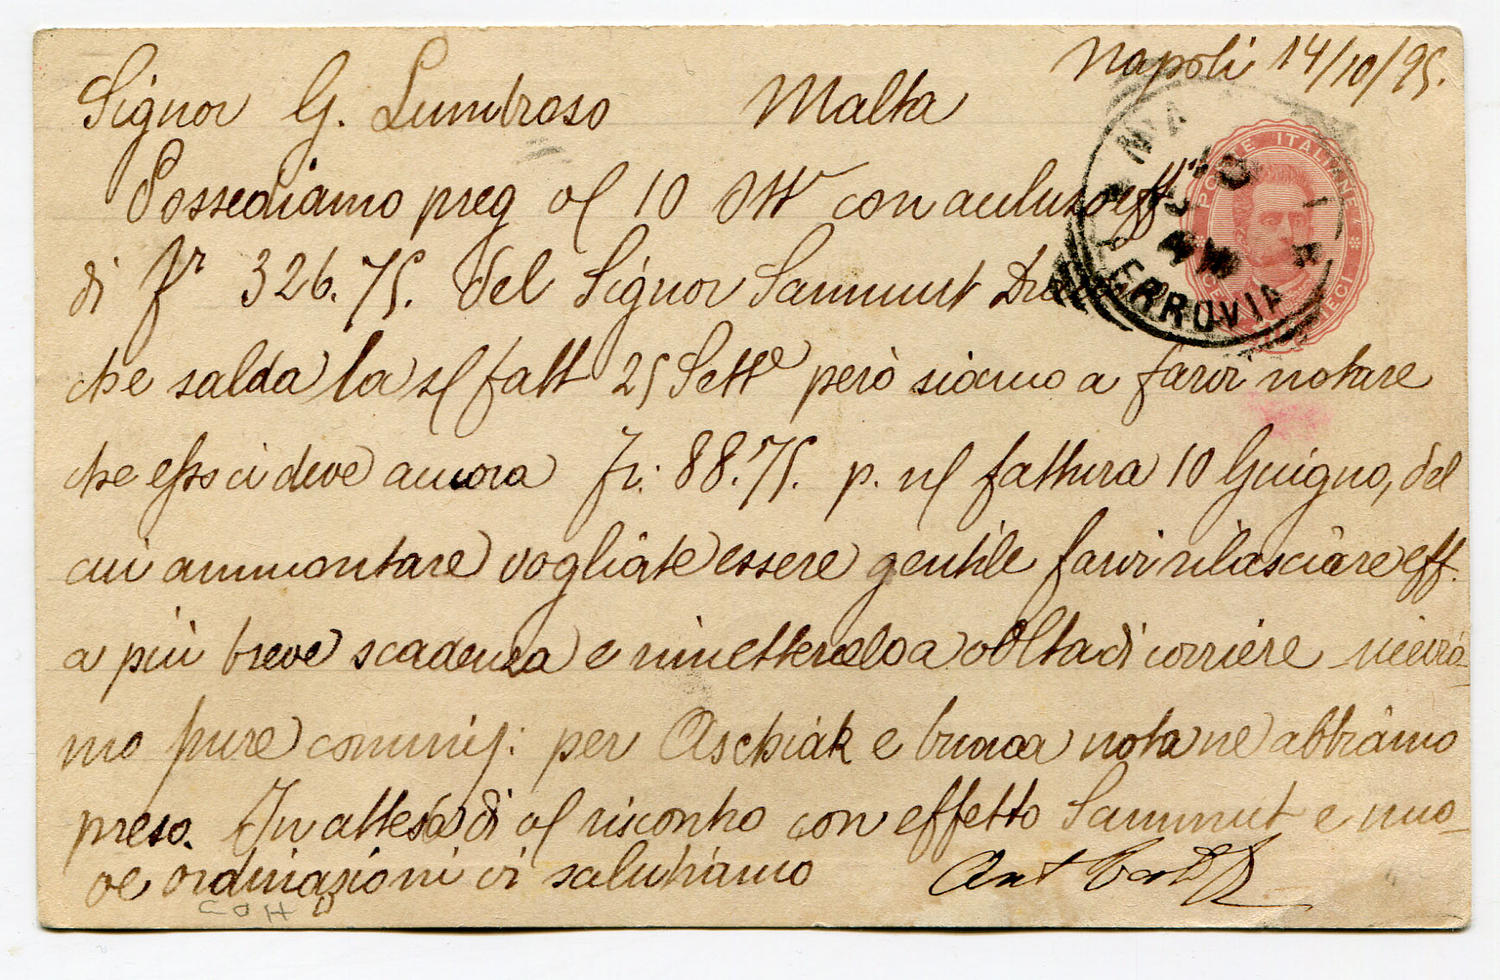 Napoli 14/10/95.
Signor G. Lumbroso Malta
Possediamo preg 10 Ott con accluso eff
di Fr 326.75. del Signor Sammut
che salda la fatt 25 Sett però siamo a farvi notare
che esso ci deve ancora Fr: 88.75. p. fattura 10 Guigno, del
cui ammontare vogliate essere gentile farvi rilasciare eff.
a più breve scadenza e rimettercelo a volta di corriere
mo pure commiss: per Aschiak e buona nota ne abbiamo
preso. In attesa di riscontro con effetto Sammut e nuo-
ve ordinazioni vi salutiamo
POSTE ITALIANE
FERROVIA